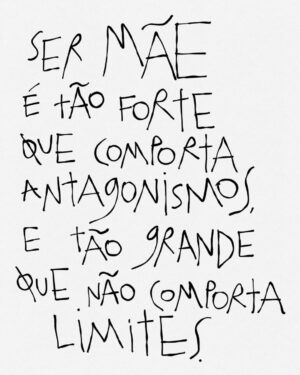 SER MÃE
É tÃO FORTE
QUE COMPORTA
ANTAGONISMOS,
E tÃO GRANDE
QUE NÃO COMPORTA
LIMITES.